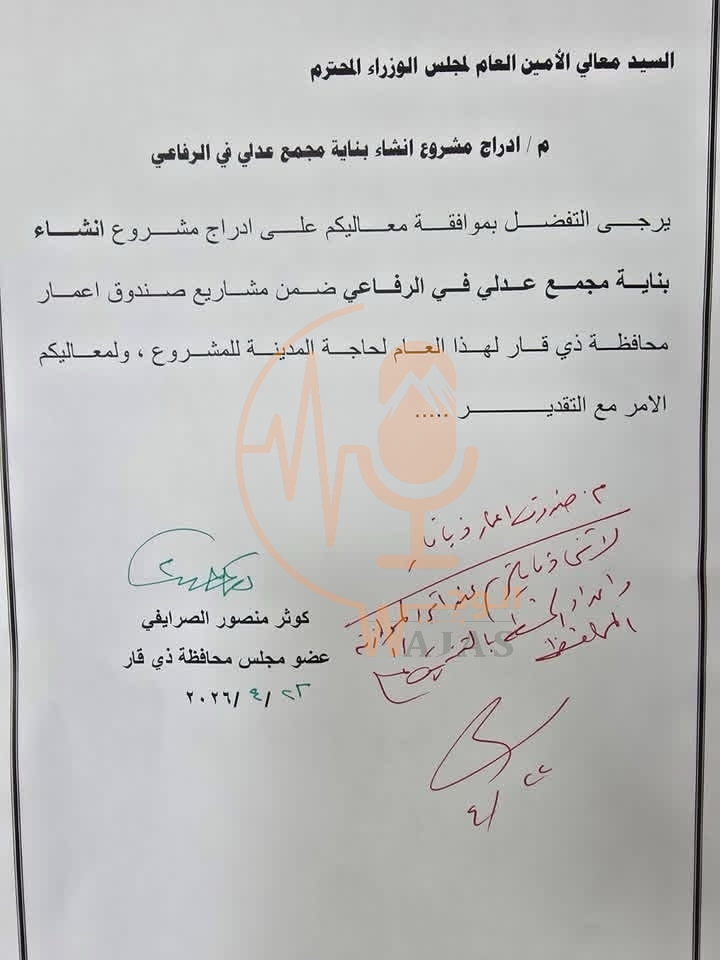 السيد معالي الأمين العام لمجلس الوزراء المحترم
م / ادراج مشروع انشاء بناية مجمع عدلي في الرفاعي
يرجى التفضل بموافقة معاليكم على ادراج مشروع انشاء
بناية مجمع عدلي في الرفاعي ضمن مشاريع صندوق اعمار
محافظة ذي قار لهذا العام لحاجة المدينة للمشروع ، ولمعاليكم
الامر مع التقدير .....
م. صندوق اعمار ذي قار
لاتخاذ مايلزم عند اقرار الموازنة
واعداد الخطة بالتنسيق
المحافظة
كوثر منصور الصرايفي
عضو مجلس محافظة ذي قار
٢٣ /٤ /٢٠٢٦
الوجس
WAJAS
٤/